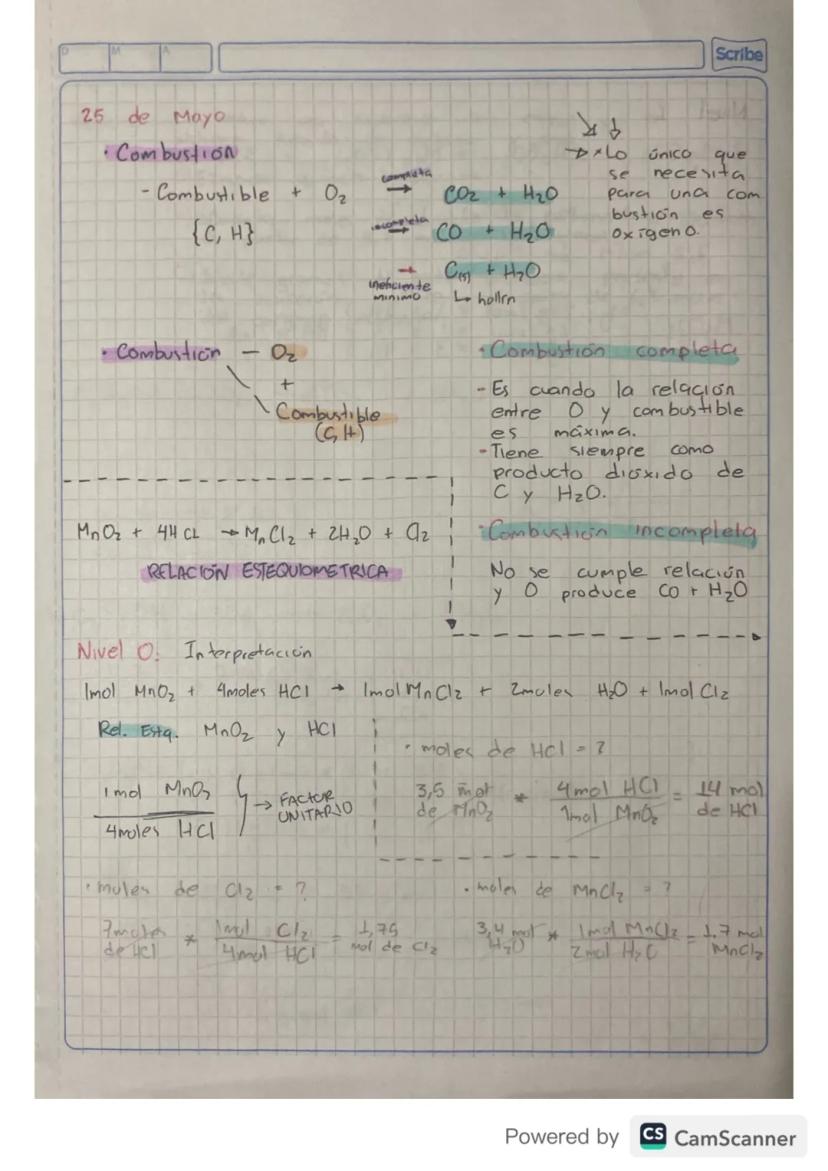 D M A
Scribe
25 de Mayo
• Combustión
- Combustible + O₂ completa → CO₂ + H₂O
{C, H} incompleta → CO + H₂O
→ C(s) + H₂O
ineficiente
minimo
↳ hollín
→ * Lo único que
se necesita
para una com
bustión es
oxígeno.
• Combustión — O₂
+
Combustible
(C, H)
• Combustión completa
- Es cuando la relación
entre O y combustible
es máxima.
- Tiene siempre como
producto dióxido de
C y H₂O.
MnO₂ + 4HCL → MnCl₂ + 2H₂O + Cl₂
RELACIÓN ESTEQUIOMETRICA
• Combustión incompleta
No se cumple relación
y O produce CO + H₂O
Nivel 0: Interpretación
1mol MnO₂ + 4moles HCl → 1mol MnCl₂ + 2moles H₂O + 1mol Cl₂
Rel. Estq. MnO₂ y HCl
1mol MnO₂
4moles HCl
→ FACTOR
UNITARIO
• moles de HCl = ?
3,5 mol de MnO₂ * 4mol HCl / 1mol MnO₂ = 14 mol de HCl
• moles de Cl₂ = ?
7moles de HCl * 1mol Cl₂ / 4mol HCl = 1,75 mol de Cl₂
• moles de MnCl₂ = ?
3,4 mol H₂O * 1mol MnCl₂ / 2mol H₂O = 1,7 mol MnCl₂
Powered by CS CamScanner